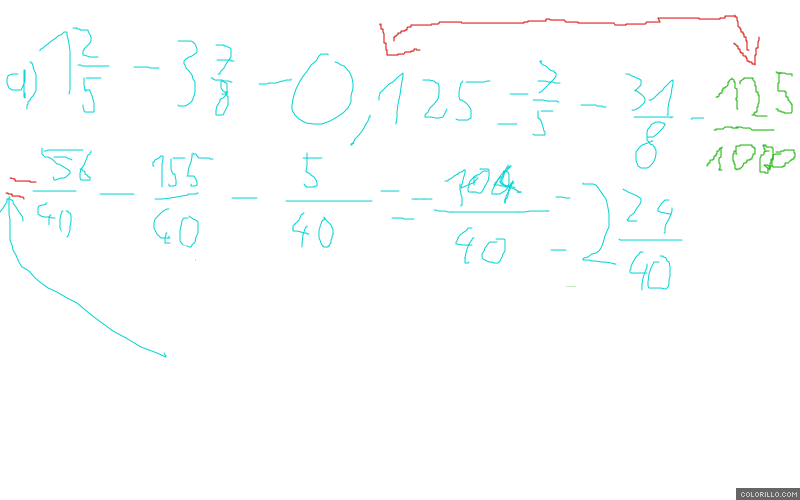 a) 1 2/5 - 3 7/8 - 0,125 = 7/5 - 31/8 - 125/1000
= 56/40 - 155/40 - 5/40 = - 104/40 = - 2 24/40
COLORILLO.COM